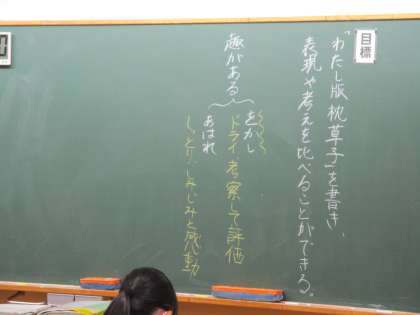 目標
「わたし版枕草子」を書き、
表現や考えを比べることができる。
趣がある
をかし
ドライ 考察して評価
あはれ
しっとり しみじみと感動